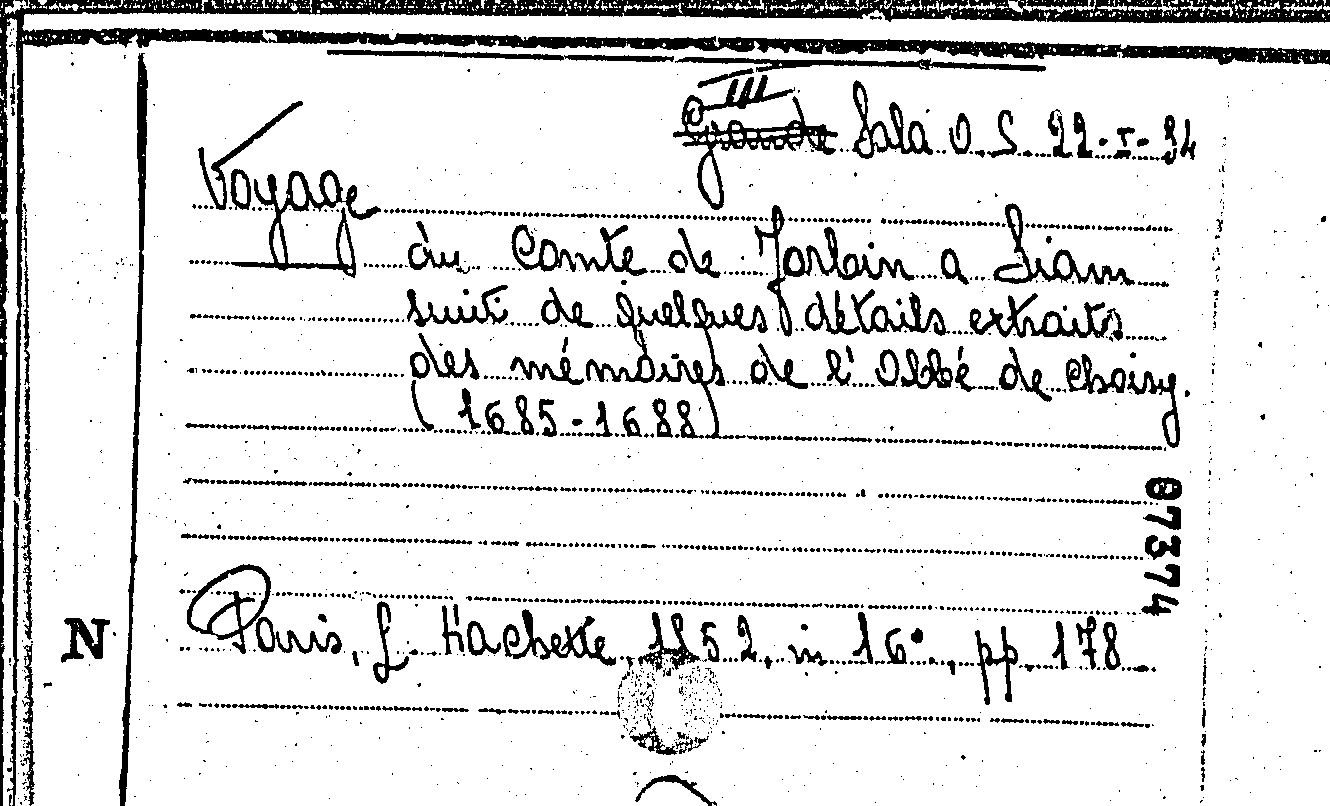 III
Grande Sala O. S. 22-I-34
Voyage
du Comte de Forbin a Siam
suit de quelques détails extraits
des mémoires de l'Abbé de Choisy.
(1685-1688)
87374
N
Paris, L. Hachette, 1852, in 16°., pp. 178